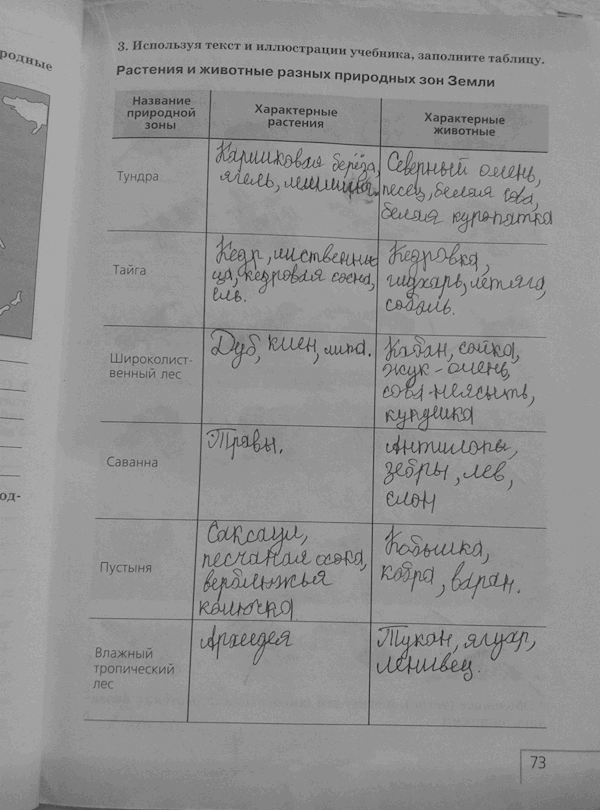 родные
од-
3. Используя текст и иллюстрации учебника, заполните таблицу.
Растения и животные разных природных зон Земли
Название
природной
зоны
Характерные
растения
Характерные
животные
Тундра
Карликовая берёза,
ягель,
Северный олень,
песец, белая сова,
белая куропатка
Тайга
Кедр, лиственни-
ца, кедровая сосна,
ель.
Кедровка,
глухарь, летяга,
соболь.
Широколист-
венный лес
Дуб, клен, липа.
Кабан, сойка,
жук-олень,
сова-неясыть,
Саванна
Травы.
Антилопы,
зебры, лев,
слон
Пустыня
Саксаул,
песчаная осока,
верблюжья
колючка
Кобышка,
кобра, варан.
Влажный
тропический
лес
Архидея
Тукан, ягуар,
ленивец.
73